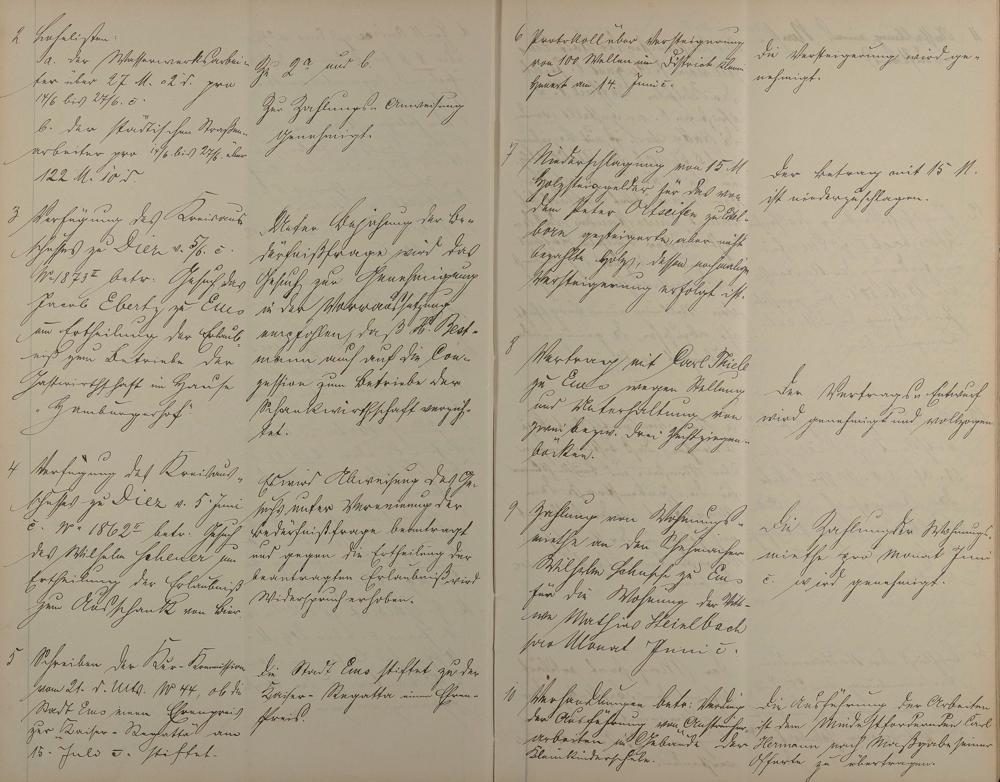 2 Lohnlisten:
a. der Wasserwerksarbei-
ter über 27 M. 02 d. pro
14/6 bis 27/6. c.
b. der städtischen Straßen-
arbeiter pro 14/6 bis 27/6. über
122 M. 10 d.
Zu 2a und b.
Zur Zahlungs-Anweisung
genehmigt.
3 Verfügung des Kreisaus
schusses zu Diez v. 5/6. c.
No 1873 II betr. Gesuch des
Jacob Ebertz zu Ems
um Ertheilung der Erlaub-
niß zum Betriebe der
Gastwirthschaft im Hause
"Hamburgerhof"
Unter Bejahung der Be-
dürfnißfrage wird das
Gesuch zur Genehmigung
in der Voraussetzung
empfohlen, daß H. Best-
mann auch auf die Con-
zession zum Betriebe der
Schankwirthschaft verzich-
tet.
4 Verfügung des Kreisaus-
schusses zu Diez v. 5. Juni
c. No 1862 II betr. Gesuch
des Wilhelm Scheuer um
Ertheilung der Erlaubniß
zum Ausschank von Bier.
Es wird Abweisung des Ge-
suchs unter Verneinung der
Bedürfnißfrage beantragt
und gegen die Ertheilung der
beantragten Erlaubniß wird
Widerspruch erhoben.
5 Schreiben der Kur-Kommission
vom 21. d. Mts. No 44, ob die
Stadt Ems einen Ehrenpreis
zur Kaiser-Regatta am
15. Juli c. stiftet.
Die Stadt Ems stiftet zu der
Kaiser-Regatta einen Ehren-
preis.
6 Protokoll über Versteigerung
von 100 Wellen im District
am 14. Juni c.
Die Versteigerung wird ge-
nehmigt.
7 Niederschlagung von 15 M.
Holzsteiggelder für das von
dem Peter Ortseifen zu
born gesteigerte, aber nicht
bezahlte Holz, dessen nochmalige
Versteigerung erfolgt ist.
Der Betrag mit 15 M.
ist niederzuschlagen.
8 Vertrag mit Carl Thiele
zu Ems wegen Stellung
und Unterhaltung von
zwei bezw. drei Zuchtziegen-
böcken.
Der Vertrags-Entwurf
wird genehmigt und vollzogen.
9 Zahlung von Wohnungs-
miethe an den
Wilhelm zu Ems
für die Wohnung der Witt-
we Mathias Steinelbach
pro Monat Juni c.
Die Zahlung der Wohnungs-
miethe pro Monat Juni
c. wird genehmigt.
10 Verhandlungen betr. Verding
der Ausführung von Anstreicher-
arbeiten im Gebäude der
Kleinkinderschule.
Die Ausführung der Arbeiten
ist dem Mindestfordernden Carl
Hermann nach Maßgabe seiner
Offerte zu übertragen.